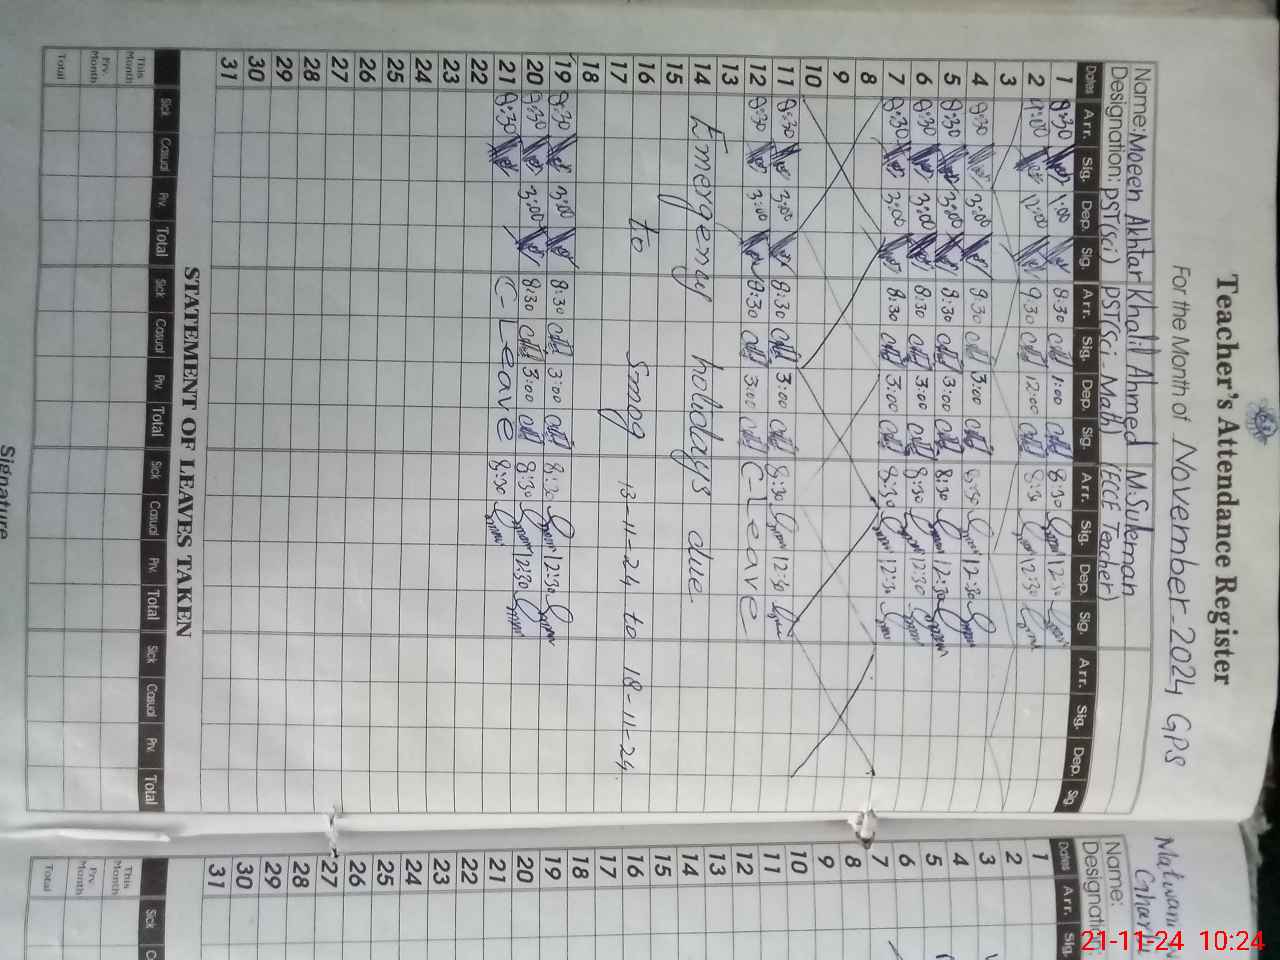 Teacher's Attendance Register
For the Month of November-2024 GPS
Name: Moeen Akhtar Khalil Ahmed M. Suleman
Designation: PST(Sci) PST(Sci-Math) (ECCE Teacher)
Dates Arr. Sig. Dep. Sig. Arr. Sig. Dep. Sig. Arr. Sig. Dep. Sig. Arr. Sig. Dep. Sig.
1 8:30 1:00 8:30 1:00 8:30 12:
2 9:00 12:00 9:30 12:00 8:30 12:30
3
4 8:30 3:00 8:30 3:00 8:30 12:30
5 8:30 3:00 8:30 3:00 8:30 12:30
6 8:30 3:00 8:30 3:00 8:30 12:30
7 8:30 3:00 8:30 3:00 8:30 12:30
8
9
10
11 8:30 3:00 8:30 3:00 8:30 12:30
12 8:30 3:00 8:30 3:00 C-Leave
13
14 Emergency holidays due
15
16 to Smog 13-11-24 to 18-11-24.
17
18
19 8:30 3:00 8:30 3:00 8:30 12:30
20 8:30 3:00 8:30 3:00 8:30 12:30
21 8:30 C-Leave 8:30
22
23
24
25
26
27
28
29
30
31
STATEMENT OF LEAVES TAKEN
Sick Casual Prv. Total Sick Casual Prv. Total Sick Casual Prv. Total Sick Casual Prv. Total
This Month
Prv. Month
Total
Signature
Name:
Designation:
Dates Arr. Sig.
1
2
3
4
5
6
7
8
9
10
11
12
13
14
15
16
17
18
19
20
21
22
23
24
25
26
27
28
29
30
31
Sick
This Month
Prv. Month
Total
21-11-24 10:24